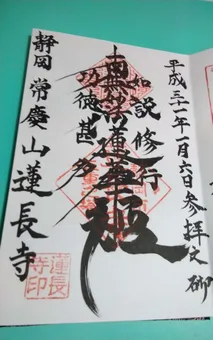 平成三十一年一月六日参拝之御
如説修行
南無妙法蓮華経
功徳甚多
静岡常慶山蓮長寺
蓮長
寺印